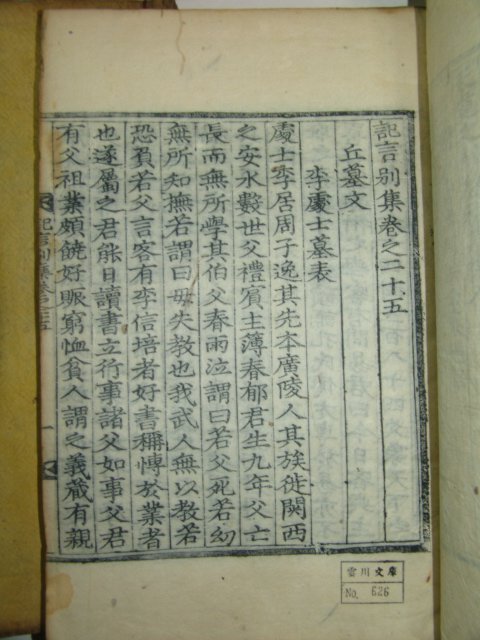 記言別集卷之二十五
丘墓文
李處士墓表
處士李居周子逸其先本廣陵人其族徙關西
之安水數世父禮賓主簿春郁君生九年父亡
長而無所學其伯父春雨泣謂曰若父死若幼
無所知撫若謂曰毋失教也我武人無以教若
恐負若父言客有李信培者好書稱愽於業者
也遂屬之君能日讀書立行事諸父如事父君
有父祖業頗饒好賑窮恤貧人謂之義藏有親
記言別集卷之二十五
一
雲川文庫
No. 626